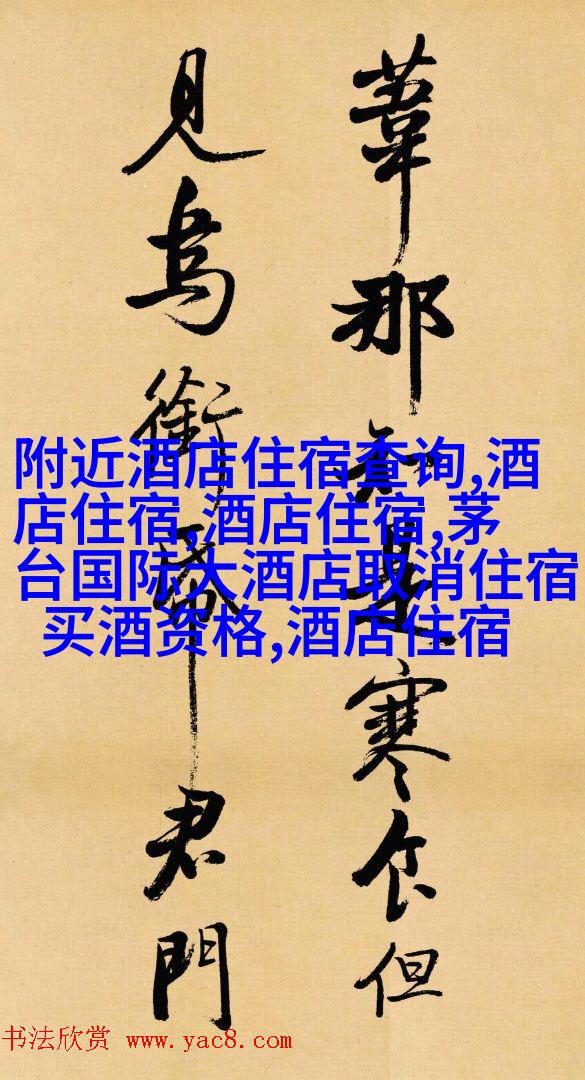 葦那知是寒食但
見烏銜帋君門
附近酒店住宿查询,酒
店住宿,酒店住宿,茅
台国际大酒店取消住宿
买酒资格,酒店住宿
书法欣赏 www.yac8.com